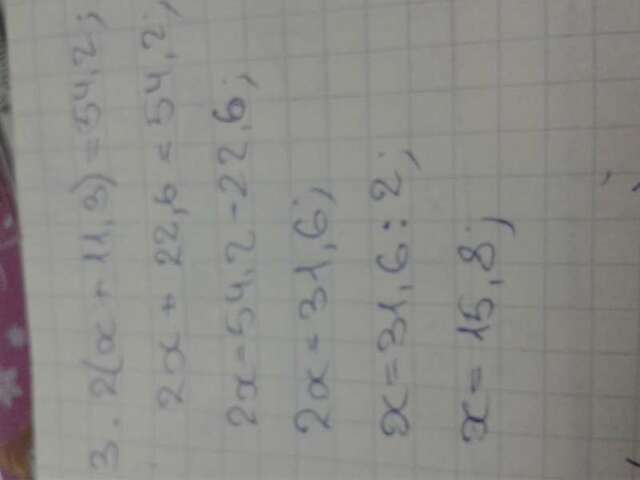 3. 2(x + 11,3) = 54,2;
2x + 22,6 = 54,2;
2x = 54,2 - 22,6;
2x = 31,6;
x = 31,6 : 2;
x = 15,8;